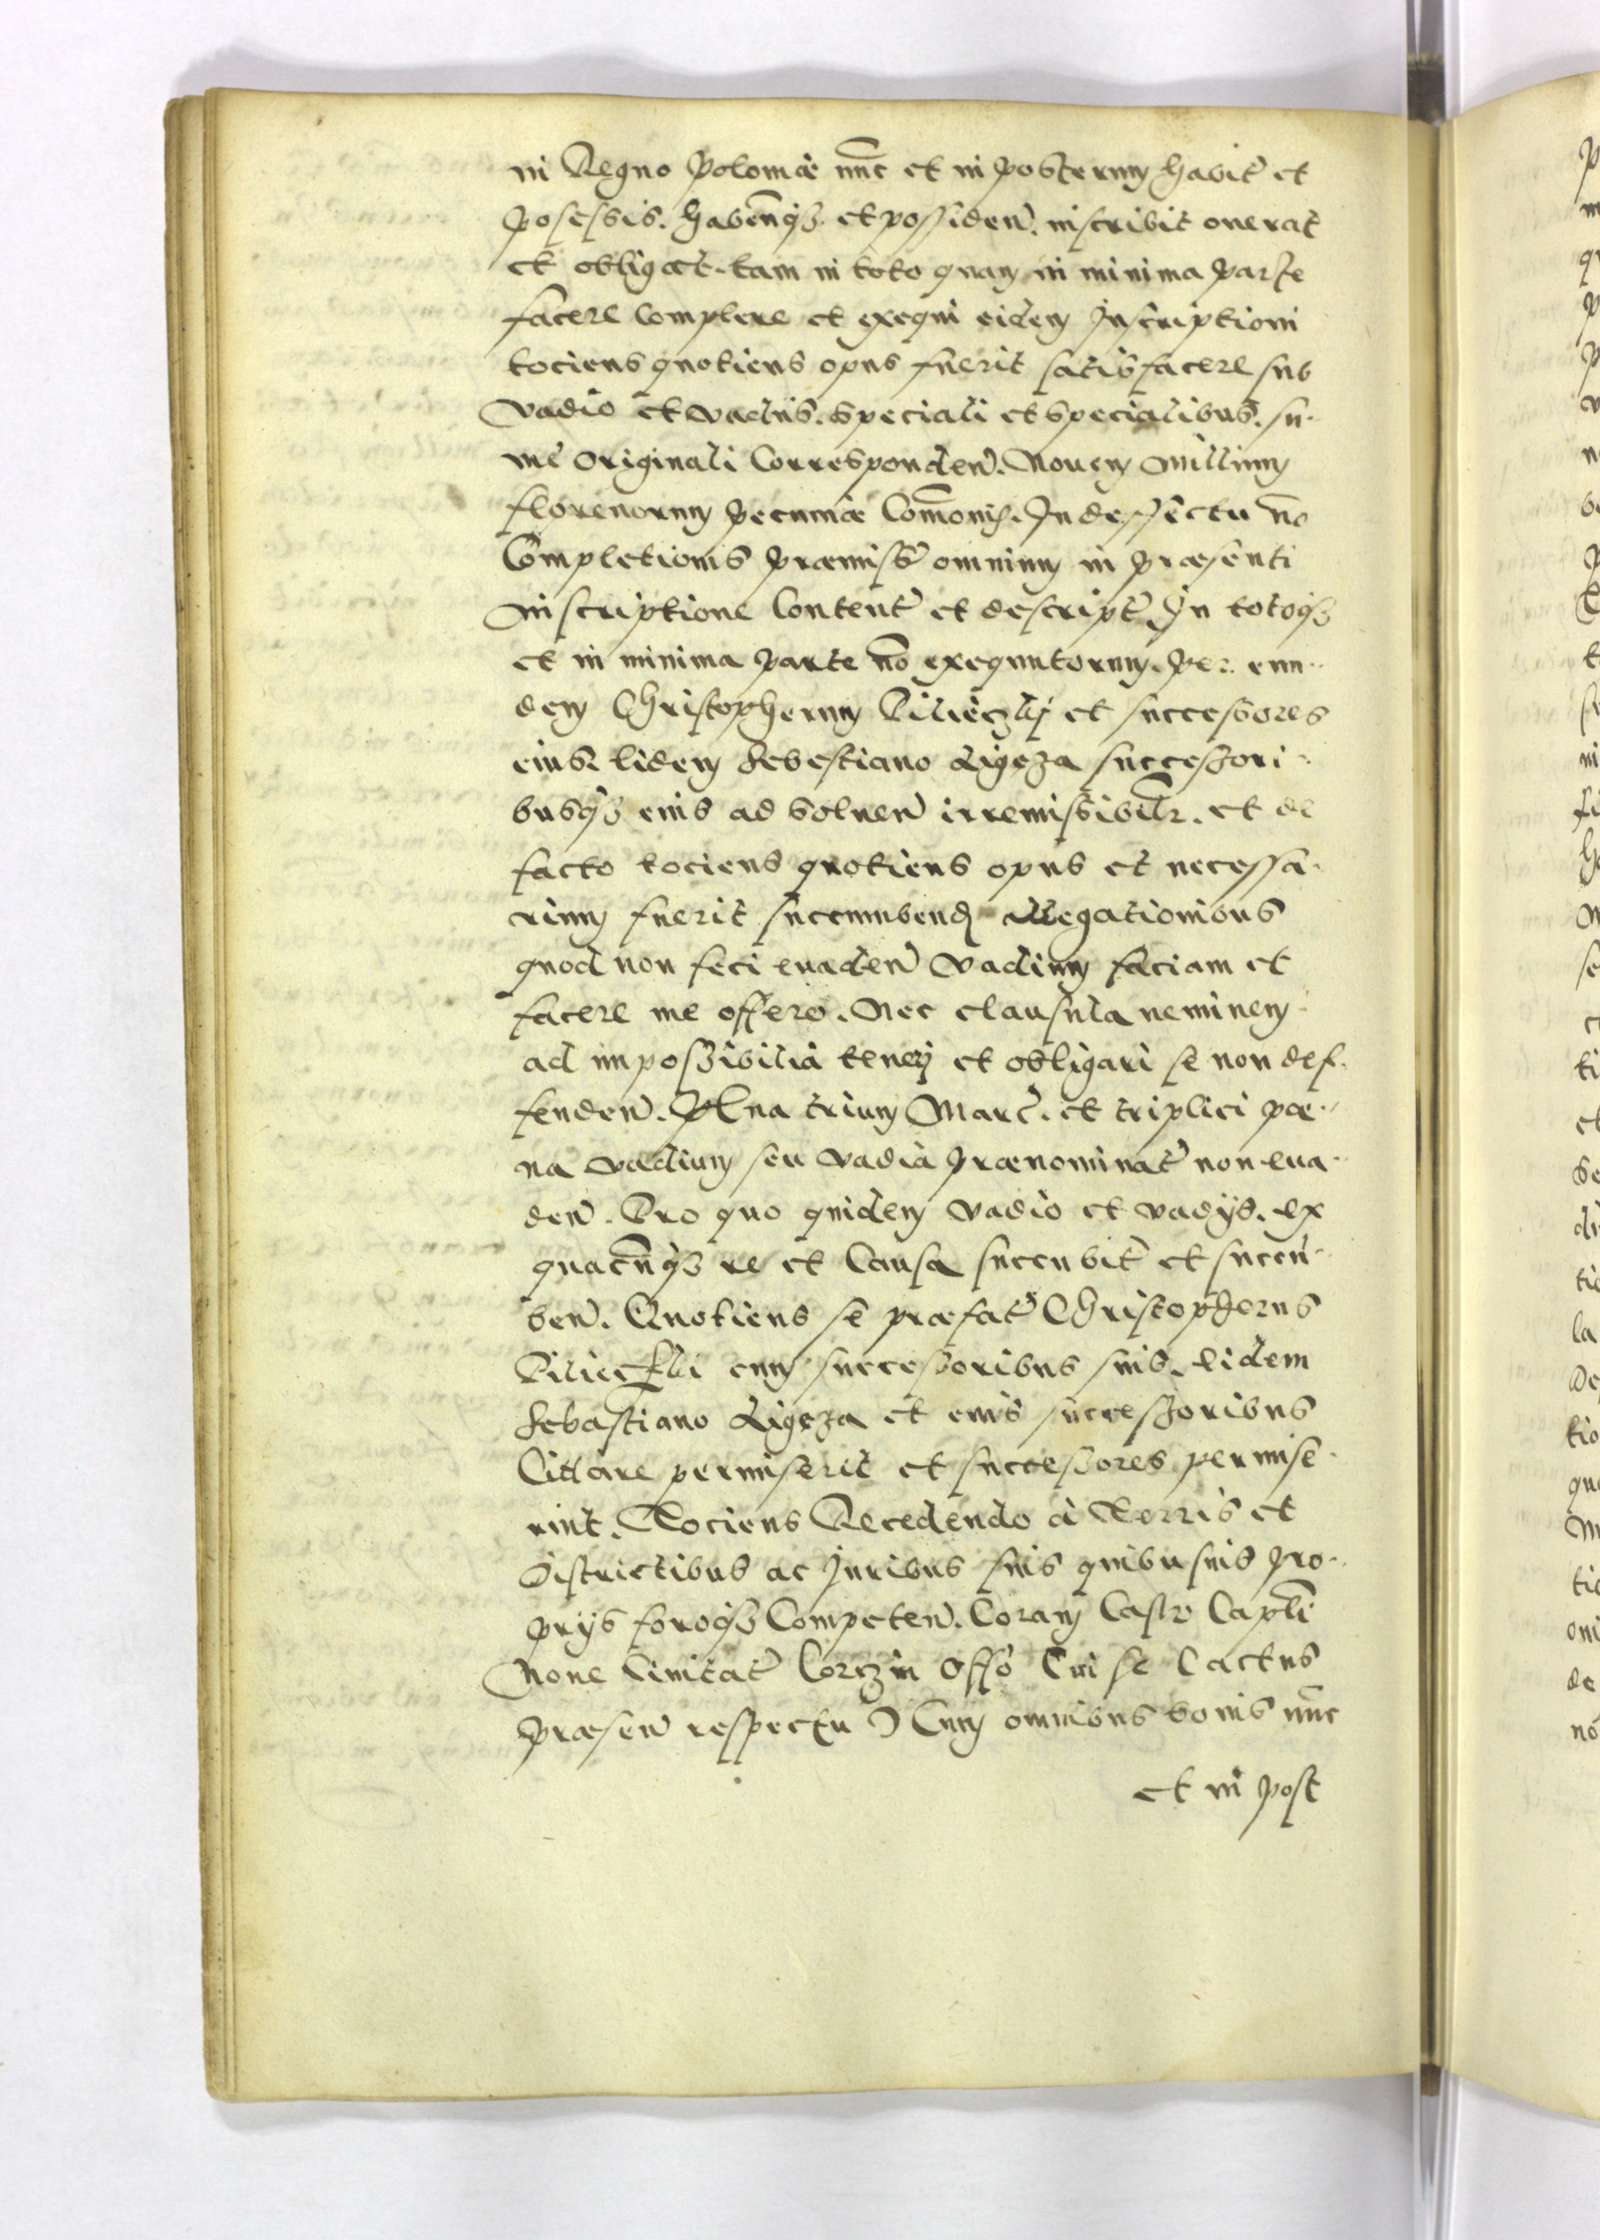 in Regno Poloniæ nūc et in posterum habit̄ et
posessis. habenqȝ et possiden̄. inscribit onerat
et obligat. tam in toto quam in minima parte
facere Complere et exequi eidem Inscriptioni
tociens quotiens opus fuerit satisfacere sub
vadio et vadiis. speciali et specialibus. su-
mæ Originali Corresponden̄. Novem Millium
florenorum pecuniæ Com̄onis. In deffectu nō
Completionis præmiss̄ omnium in præsenti
inscriptione Content̄ et descript̄. In totoqȝ
et in minima parte nō exequutorum. per eun-
dem Christopherum et successores
eius. eidem Sebestiano Ligęza successori-
busqȝ eius ad soluen̄ irremissibilr̄. et de
facto tociens quotiens opus et necessa-
rium fuerit succumbend allegationibus
quod non feci euaden̄ vadium faciam et
facere me offero. Nec clausula neminem
ad impossibilia tenerj et obligari se non def-
fenden̄. Pœna trium Marc̄. et triplici pæ-
na vadium seu vadia prænominat̄ non eua-
den̄. Pro quo quidem vadio et vadijs. ex
quacūqȝ re et Causa succubit̄ et succū-
ben̄. Quotiens se præfat̄ Christopherus
cum successoribus suis. eidem
Sebastiano Ligęza et eius successoribus
Cittare permiserit et successores permise-
rint. Tociens Recedendo à Terris et
Districtibus ac Juribus suis quibusuis pro-
prijs foroqȝ Competen̄. Coram Castr̄ Capli
None Ciuitat̄ Corczin Offō Cui se Cactus
præsen̄ respectu Cum omnibus bonis nūc
et in post